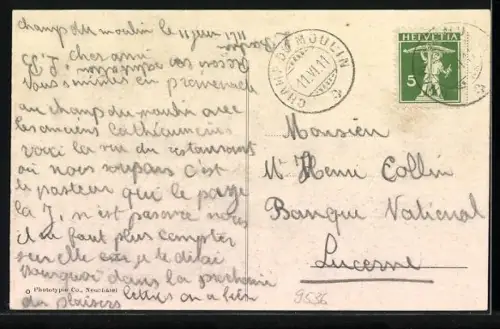 Champ du moulin le 11 juin 1911
cher ami
Nous sommes en promenade
au champ du moulin avec
les anciens cathécumènes
voici la vue du restaurant
où nous soupons c'est
le pasteur qui le paye
la J. n'est pas avec nous
il ne faut plus compter
sur elle car je te dirai
pourquoi dans la prochaine
lettre on a bien
du plaisir
© Phototypie Co., Neuchâtel
CHAMP DU MOULIN
11.VI.11
HELVETIA
5
Monsieur
Mr Henri Collin
Banque National
Lucerne
9536